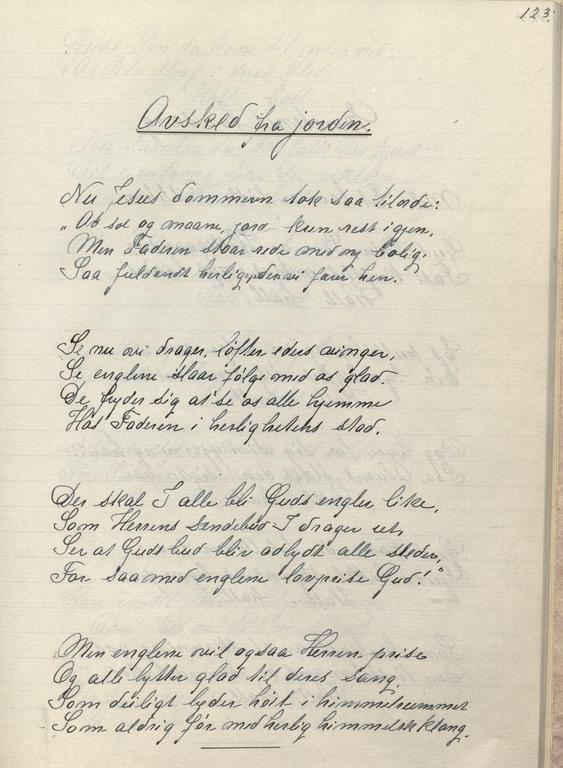 123.
Avsked fra jorden.
Nu Jesus dommeren tok saa tilorde:
"At sol og maane, jord kun rest igjen,
Men Faderen staar rede med ny bolig.
Saa fuldendt herlig, der vi farer hen.
Se nu vi drager, løfter eders vinger,
Se englene staar følge med os glad.
De fryder sig at se os alle hjemme
Hos Faderen i herlighetens stad.
Der skal I alle bli Guds engler like,
Som Herrens sendebud I drager ut,
Ser at Guds bud blir adlydt alle steder,
For saa med englene lovprise Gud!"
Men englene vil ogsaa Herren prise
Og alle lytter glad til deres sang,
Som deiligt lyder høit i himmelrummet
Som aldrig før med herlig himmelsk klang.